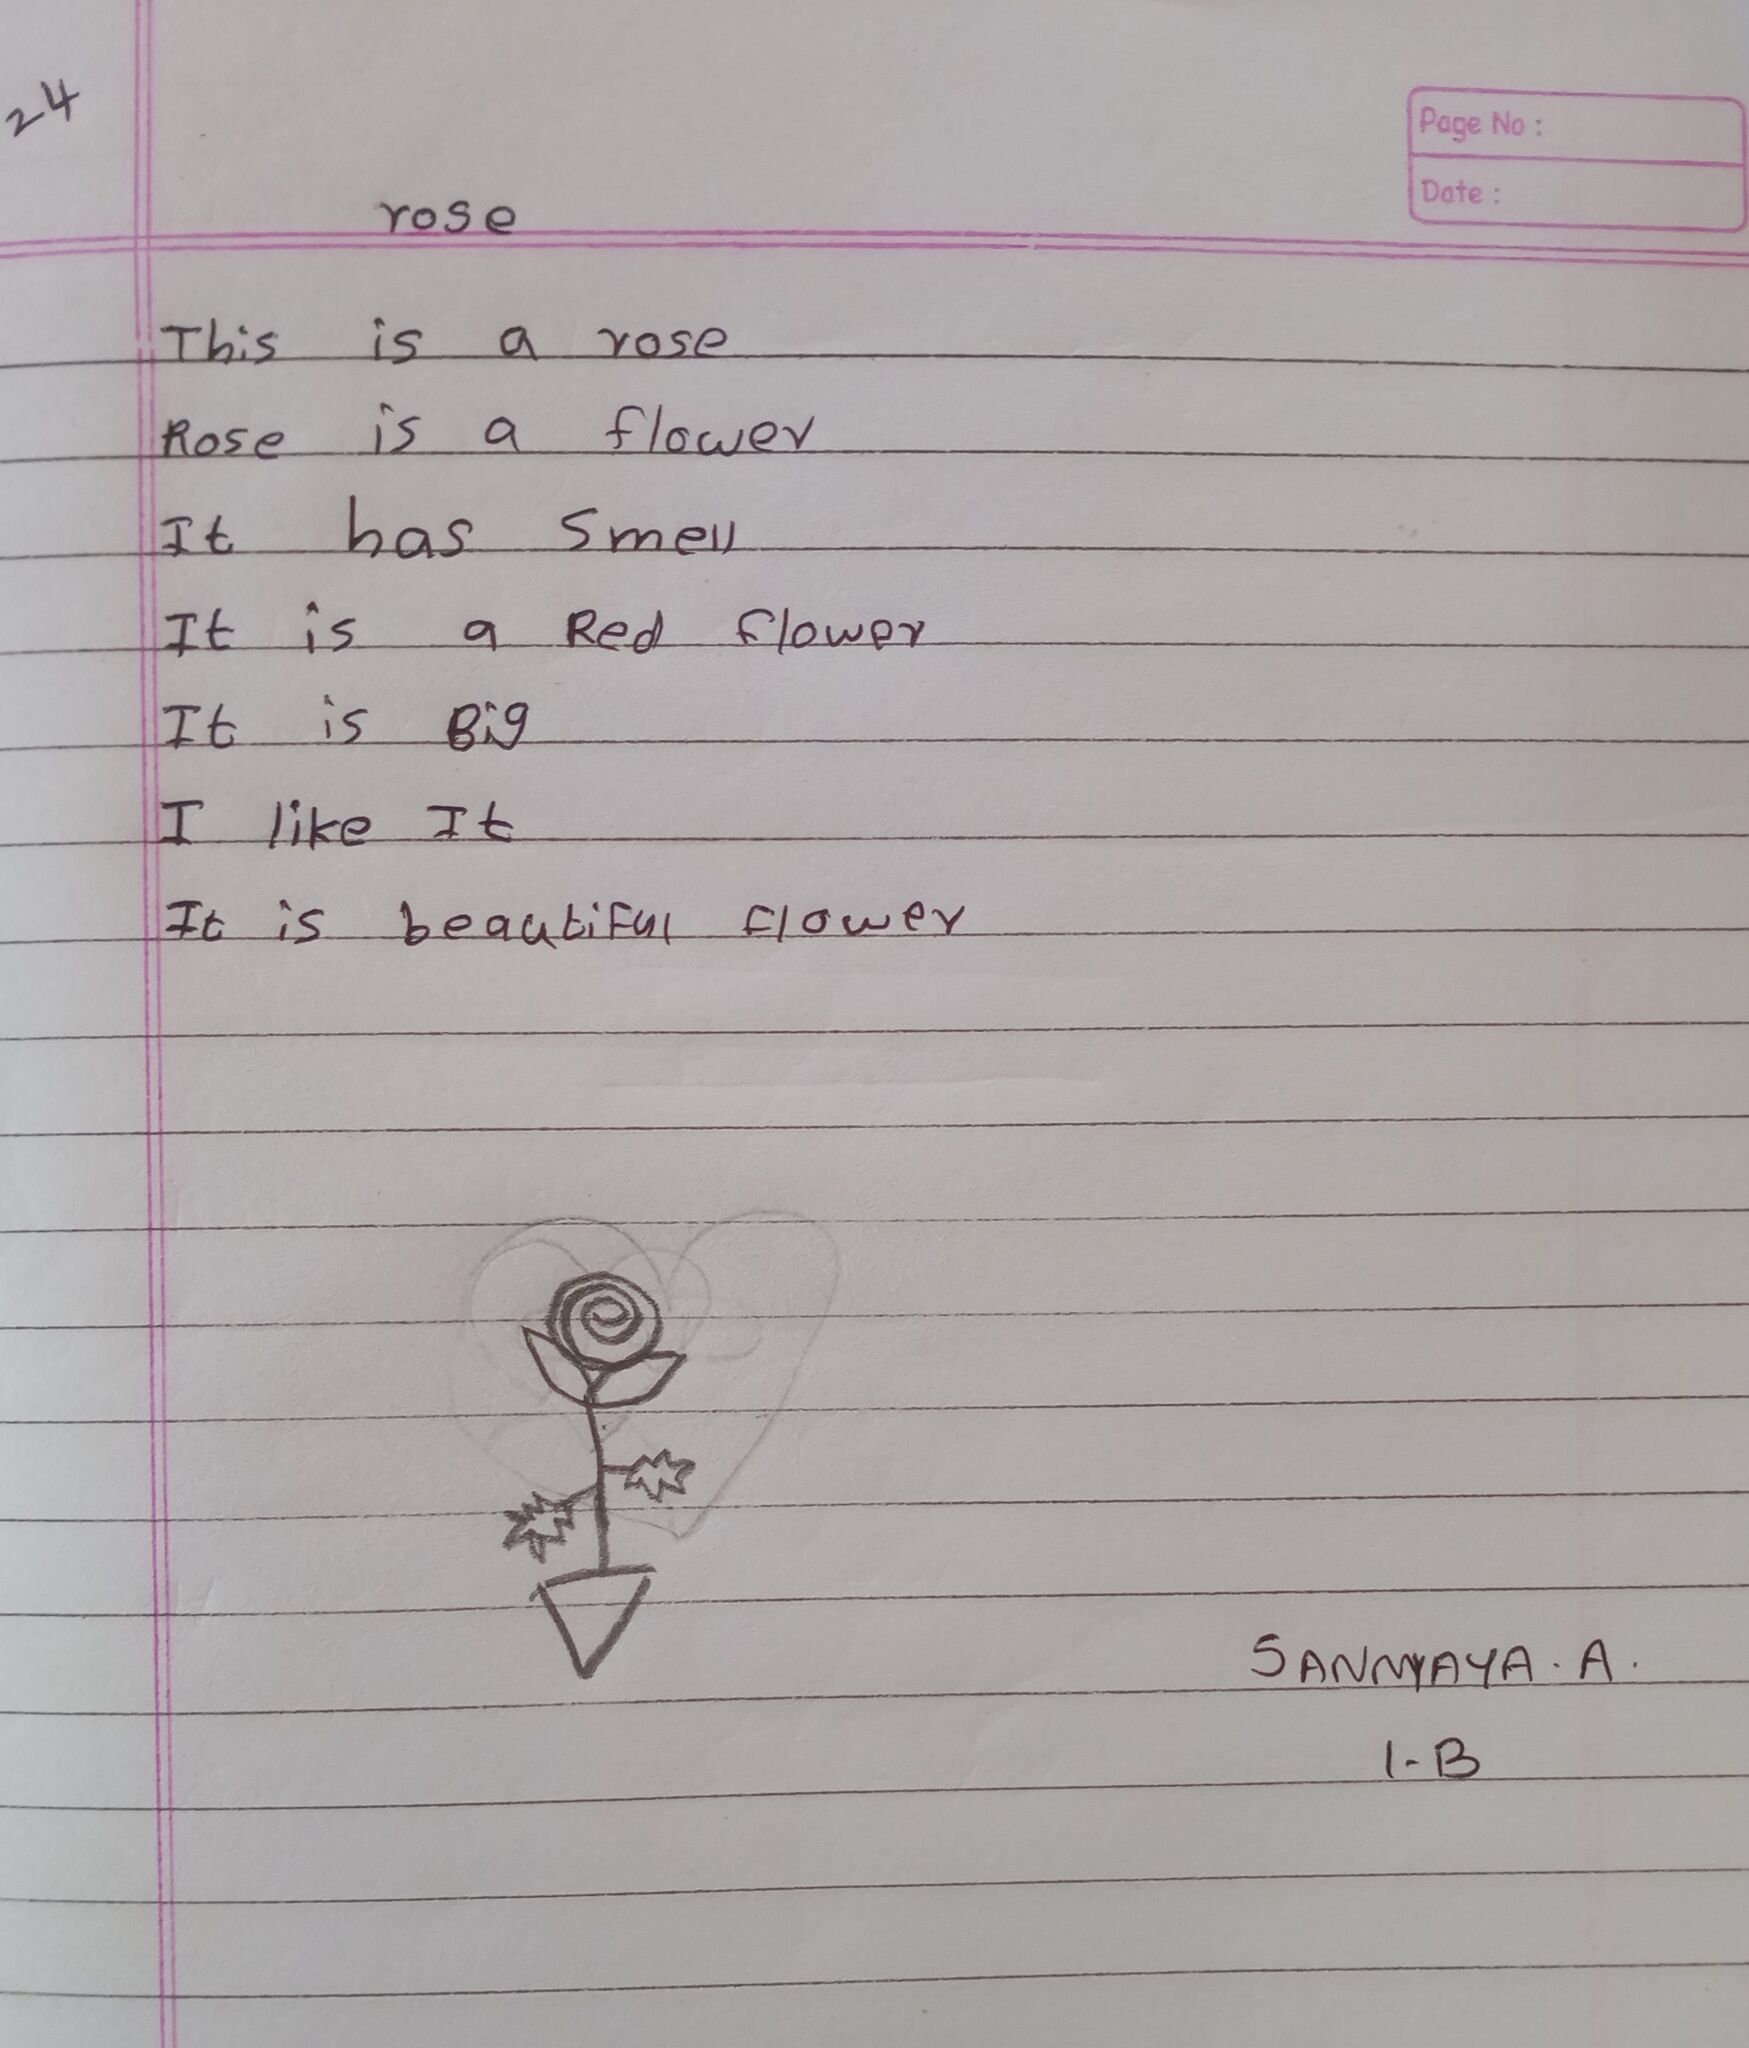 24
Page No :
Date :
rose
This is a rose
Rose is a flower
It has Smell
It is a Red flower
It is Big
I like It
It is beautiful flower
SANNYAYA. A.
1-B